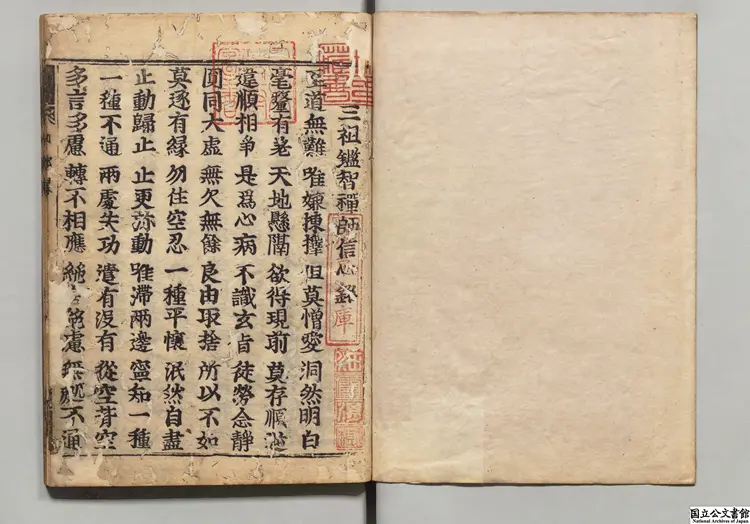 三祖鑑智禪師信心銘
至道無難 唯嫌揀擇 但莫憎愛 洞然明白
毫釐有差 天地懸隔 欲得現前 莫存順逆
違順相爭 是爲心病 不識玄旨 徒勞念靜
圓同大虛 無欠無餘 良由取捨 所以不如
莫逐有緣 勿住空忍 一種平懷 泯然自盡
止動歸止 止更弥動 唯滯兩邊 寧知一種
一種不通 兩處失功 遣有沒有 從空背空
多言多慮 轉不相應 絶言絶慮 無處不通
国立公文書館
National Archives of Japan